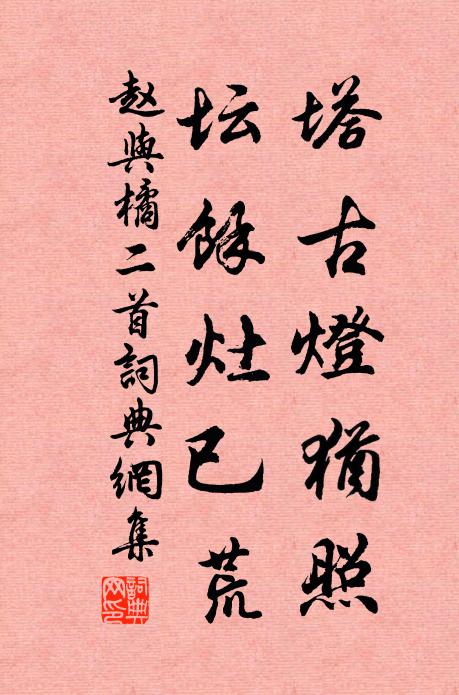 塔古燈猶照
坛餘灶已荒
赵與橘二首詞典網集
詞典网印